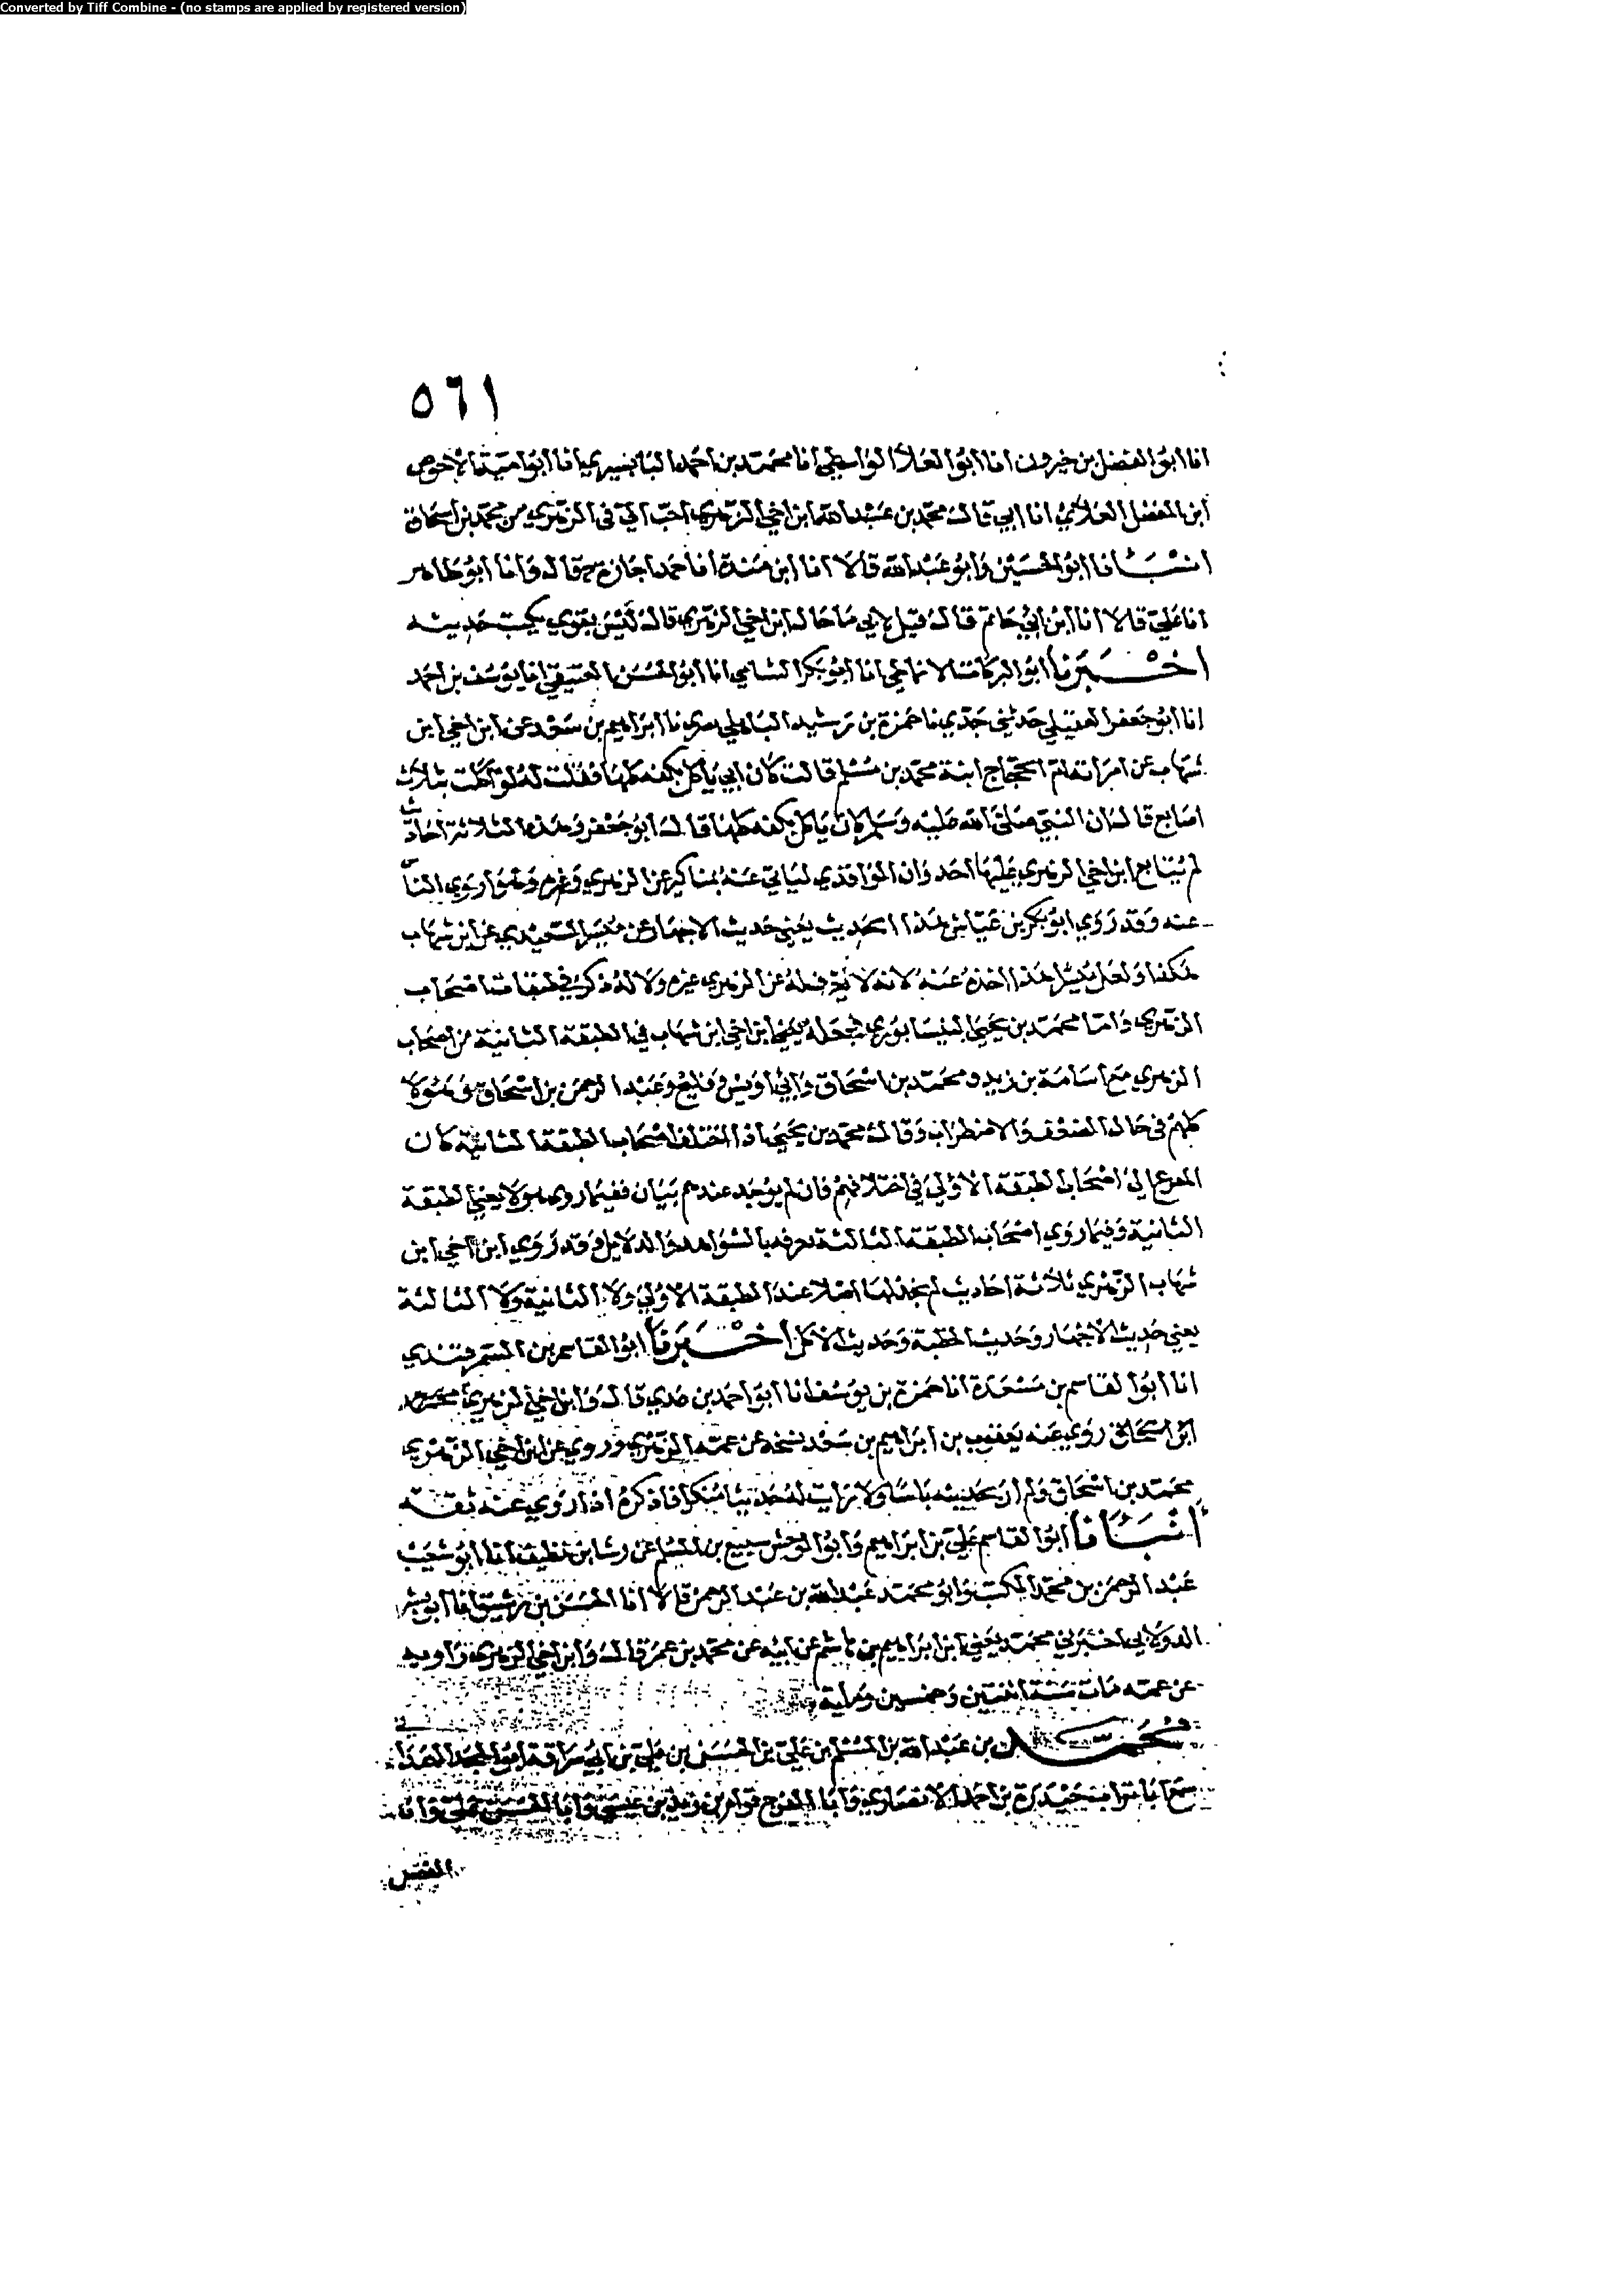 Converted by Tiff Combine - (no stamps are applied by registered version)
٥٦١
انا ابو الفضل بن خيرون انا ابو العلا الواسطي انا محمد بن احمد البابسيري انا ابو امية الاحوص
ابن المفضل الغلابي انا ابي قال محمد بن عبد الله ابن اخي الزهري احب الي في الزهري من محمد بن اسحاق
انبانا ابو الحسين وابو عبد الله قالا انا ابن مندة انا حمد اجازة ح قال وانا ابو طاهر
انا علي قالا انا ابن ابي حاتم قال قيل لابي ما حال ابن اخي الزهري قال ليس بقوي يكتب حديثه
اخبرنا ابو البركات الانماطي انا ابو بكر الشامي انا ابو الحسن العتيقي انا يوسف بن احمد
انا ابو جعفر العقيلي حدثني جدي نا حمزة بن رشيد الباهلي نا ابراهيم بن سعد عن ابن اخي ابن
شهاب عن امراته ام الحجاج ابنة محمد بن مسلم قالت كان ابي ياكل بكفه كلها فقلت له لو اكلت بثلاث
اصابع قال ان النبي صلى الله عليه وسلم كان ياكل بكفه كلها قال ابو جعفر وهذه الثلاثة احاديث
لم يتابع ابن اخي الزهري عليها احد وان الواقدي لياتي عنه بمناكير عن الزهري وغيره وهو اروي الناس
عنه وقد روي ابو بكر بن عياش هذا الحديث يعني حديث الاجهار عن مبشر السعيدي عن ابن شهاب
هكذا ولعل مبشر هذا اخذه عنه لانه لا يحفظه عن الزهري غيره ولا له ذكر في طبقات اصحاب
الزهري واما محمد بن يحيي النيسابوري فجعله يعني ابن اخي ابن شهاب في الطبقة الثانية من اصحاب
الزهري مع اسامة بن زيد ومحمد بن اسحاق وابي اويس وفليح وعبد الرحمن بن اسحاق وهولا
كلهم في حال الضعف والاضطراب وقال محمد بن يحيي اذا اختلف اصحاب الطبقة الثانية كان
المفزع الى اصحاب الطبقة الاولي في اختلافهم فان لم يوجد عندهم بيان ففيما روي هولا يعني الطبقة
الثانية وفيما روي اصحاب الطبقة الثالثة يعرف بالشواهد والدلايل وقد روي ابن اخي ابن
شهاب الزهري ثلاثة احاديث لم نجد لها اصلا عند الطبقة الاولي ولا الثانية ولا الثالثة
يعني حديث الاجهار وحديث الخطبة وحديث الاكل اخبرنا ابو القاسم بن السمرقندي
انا ابو القاسم بن مسعدة انا حمزة بن يوسف انا ابو احمد بن عدي قال وابن اخي الزهري محمد
ابن اسحاق روي عنه يعقوب بن ابراهيم بن سعد نسخة عن عمه الزهري وروي عن ابن اخي الزهري
محمد بن اسحاق ولم ار بحديثه باسا ولا رايت له حديثا منكرا فاذكره اذا روي عنه ثقة
انبانا ابو القاسم علي بن ابراهيم وابو الوحش سبيع بن المسلم عن رشا بن نظيف انا ابو شعيب
عبد الرحمن بن محمد المكتب وابو محمد عبد الله بن عبد الرحمن قالا انا الحسن بن رشيق انا ابو بشر
الدولابي اخبرني محمد يعني ابن ابراهيم بن هاشم عن ابيه عن محمد بن عمر قال وابن اخي الزهري راويه
عن عمه مات سنة اثنتين وخمسين وماية
محمد بن عبد الله بن المسلم بن علي بن الحسن بن علي بن ابي سراقة ابو المجد
سمع ابا تراب حيدرة بن احمد الانصاري وابا الفرج قوام بن زيد بن عيسي وابا الحسن علي وابا
الفضل